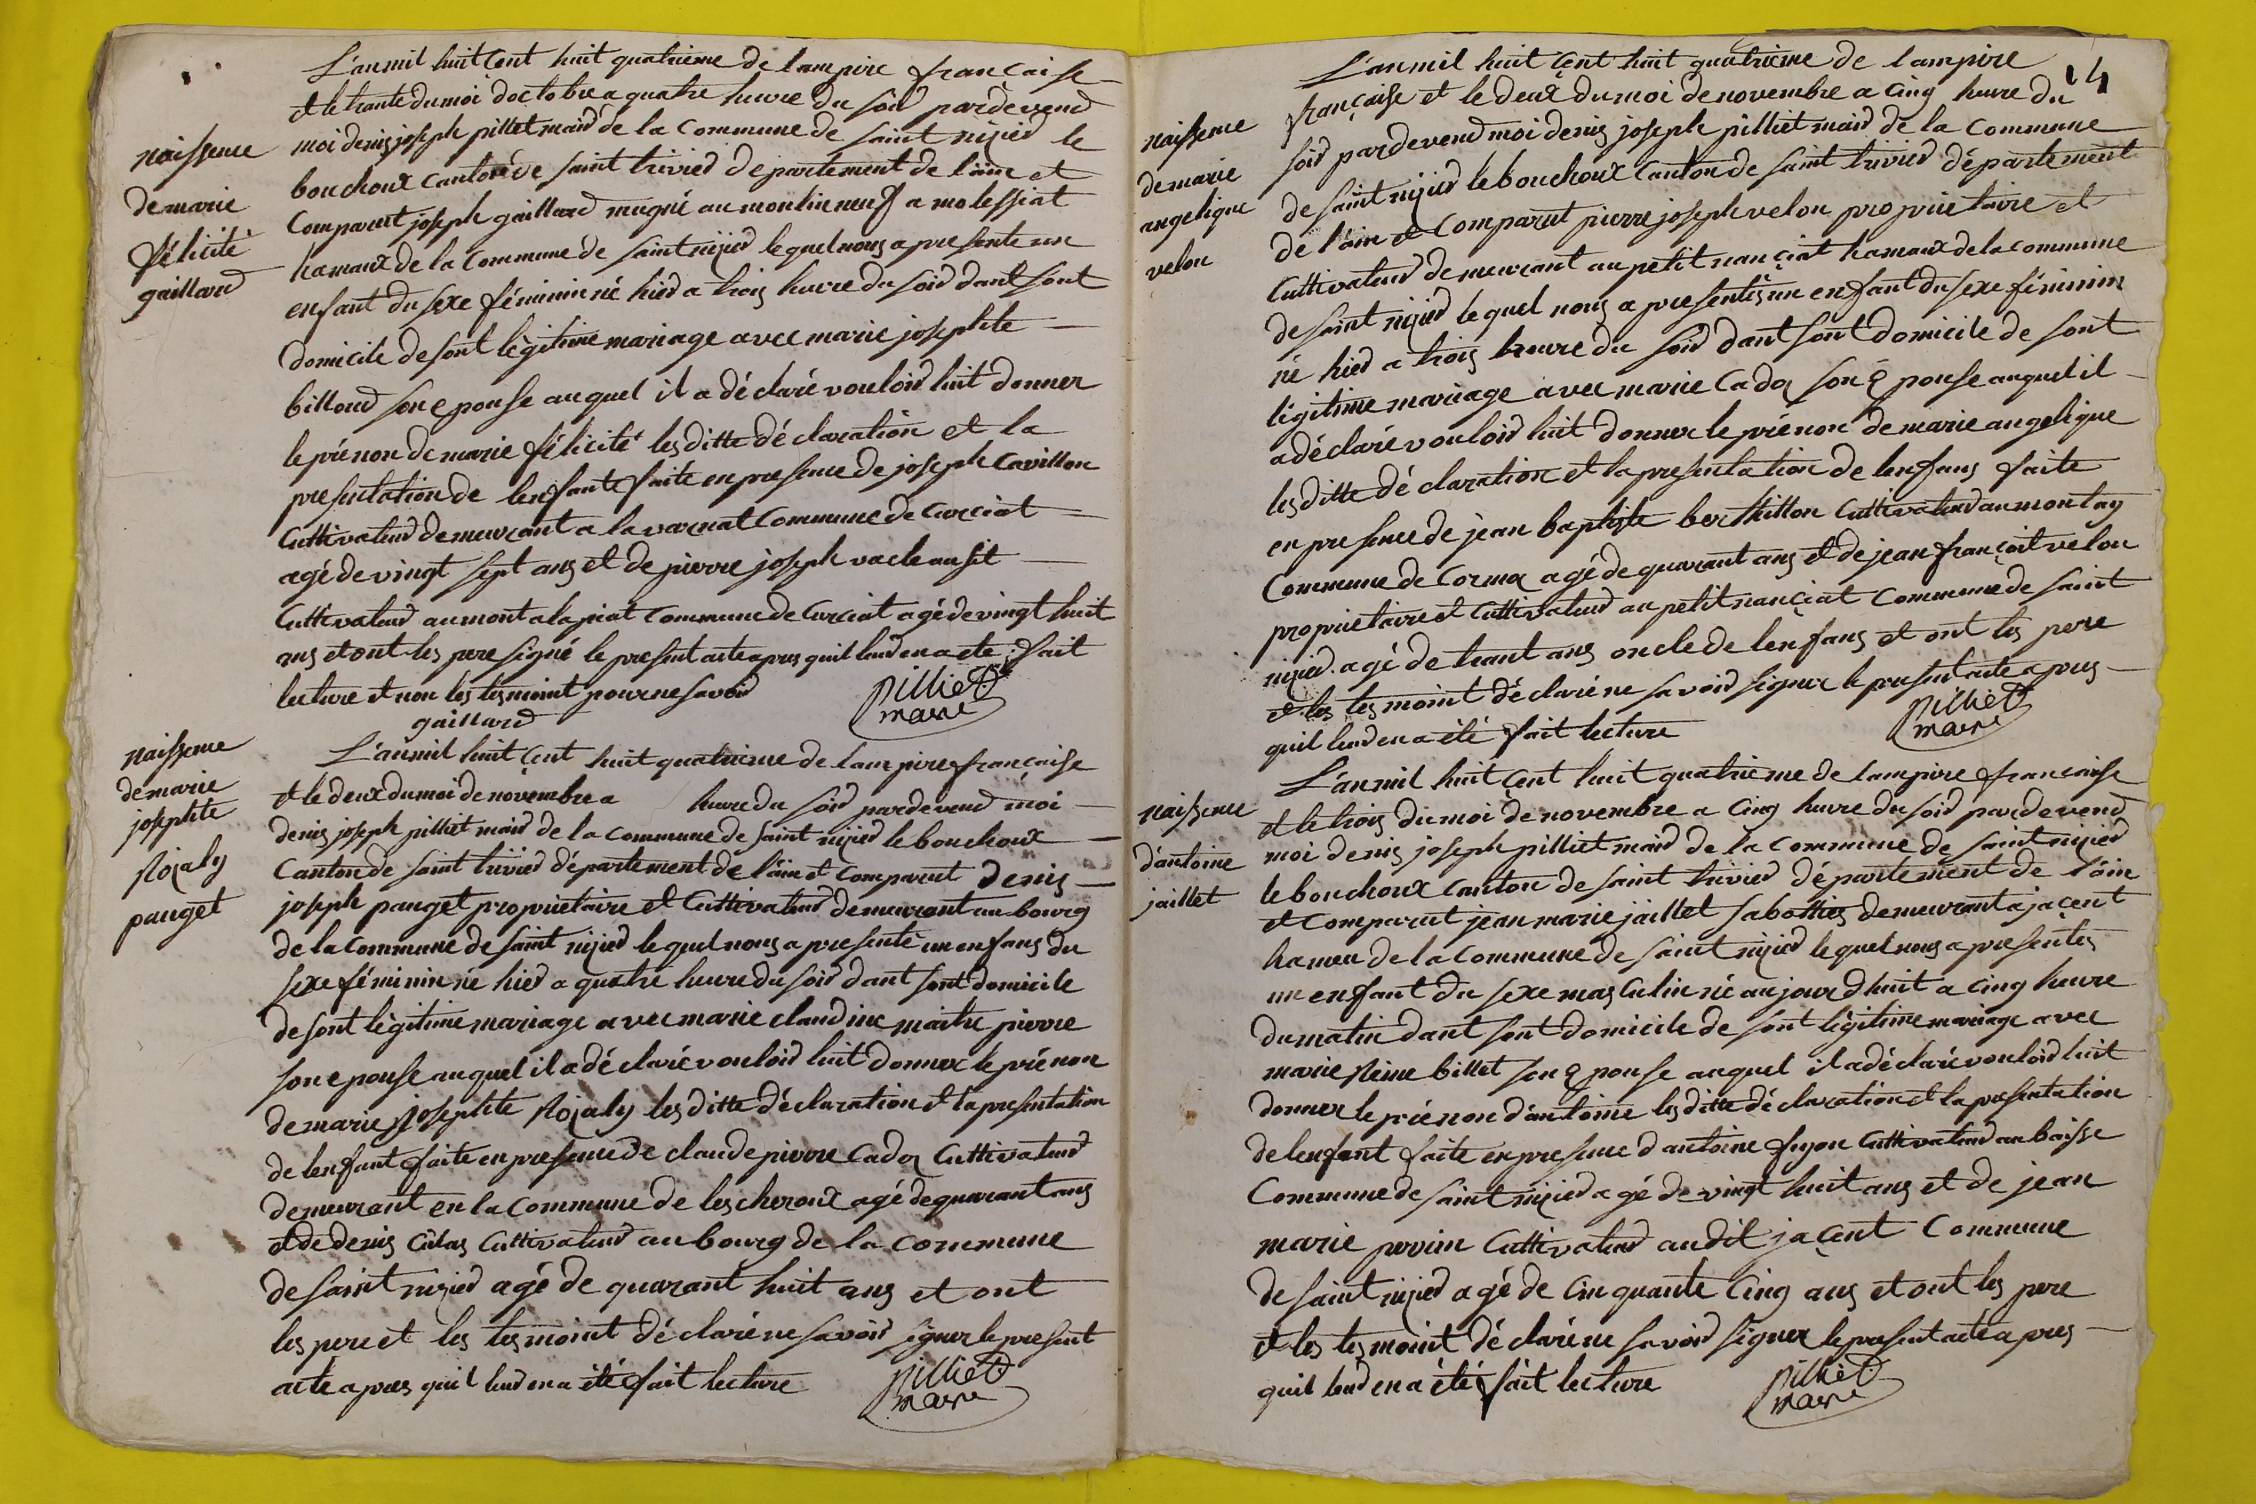 L'an mil huit Cent huit quatrieme de lampire francaise
et le trante du moi doctobre a quatre heure du soir pardevend
moi denis joseph pilliet maid de la Commune de saint nizied le
bouchoux canton de saint trivied departement de l'ain et
Comparut joseph gaillard mugnié au moulin neuf a molessiat
hamaux de la Commune de saint nizied lequel nous a presente un
enfant du sexe féminin né hied a trois heure du soid dant sont
domicile de sont légitime mariage avec marie josephte
billoud son epouse auquel il a déclaré vouloid luit donner
le prénon de marie félicité les ditte déclaration et la
presentation de lenfante faite en presence de joseph Cavillon
Cultivateud demeurant a la varnat Commune de Curciat
agé de vingt sept ans et de pierre joseph vacle ausit
Cultivateud au mont alapiat Commune de Curciat agé de vingt huit
ans et ont les pere signé le present acte apres quil leud en a ete fait
lecture et non les tesmoint pour ne savoid
gaillard
pilliet
maire
naissence
de marie
félicité
gaillard
L'an mil huit Cent huit quatrieme de lampire française
et le deux du moi de novembre a heure du soid pardevend moi
denis joseph pilliet maid de la Commune de saint nizied le bouchoux
Canton de saint trivied département de l'ain et Comparut Denis
joseph pauget propriétaire et Cultivateud demeurant au bourg
de la Commune de saint nizied lequel nous a presenté un enfans du
sexe féminin né hied a quatre heure du soid dant sont domicile
de sont légitime mariage avec marie claudine maitre pierre
son epouse auquel il a déclaré vouloid luit donner le prénon
de marie josephte Rozaly les ditte déclaration et la presentation
de lenfant faite en presence de claude pierre Cadoz Cultivateud
demeurant en la Commune de lescheroux agé de quarant ans
et de denis Cûlas Cultivateud au bourg de la Commune
de saint nizied agé de quarant huit ans et ont
les pere et les tesmoint déclaré ne savoid signer le present
acte apres quil leud en a été fait lecture
pilliet
maire
naissence
de marie
josephte
Rozaly
pauget
14
L'an mil huit Cent huit quatrieme de lampire
française et le deux du moi de novembre a Cinq heure du
soid pardevend moi denis joseph pilliet maid de la Commune
de saint nizied le bouchoux Canton de saint trivied département
de l'ain et Comparut pierre joseph velon propriétaire et
Cultivateud demeurant au petit nançiat hamaux de la Commune
de saint nizied lequel nous a presentés un enfant du sexe féminin
né hied a trois heure du soid dant sont domicile de sont
légitime mariage avec marie Cadoz son Epouse auquel il
a déclaré vouloid luit donner le prénon de marie angelique
les ditte déclaration et la presentation de lenfans faite
en presence de jean baptiste berthillon Cultivateud au montay
Commune de Cormoz agé de quarant ans et de jean françoit velon
propriétaire et Cultivateud au petit nançiat Commune de saint
nizied agé de trant ans oncle de lenfans et ont les pere
et les tesmoint déclaré ne savoid signer le present acte apres
quil leud en a été fait lecture
pilliet
maire
naissence
de marie
angelique
velon
L'an mil huit Cent huit quatrieme de lampire francaise
et le trois du moi de novembre a Cinq heure du soid pardevend
moi denis joseph pilliet maid de la Commune de saint nizied
le bouchoux canton de saint trivied département de l'ain
et Comparut jean marie jaillet sabottiés demeurant a jaçent
hameu de la Commune de saint nizied lequel nous a presentés
un enfant du sexe masculin né aujourdhuit a cinq heure
du matin dant sont domicile de sont légitime mariage avec
marie Reine billet son Epouse auquel il a déclaré vouloid luit
donner le prénon d'antoine les ditte déclaration et la presentation
de lenfant faite en presence d antoine fuyon Cultivateud au baisse
Commune de saint nizied agé de vingt huit ans et de jean
marie pervin Cultivateud au dit jaçent Commune
de saint nizied agé de Cinquante Cinq ans et ont les pere
et les tesmoint déclaré ne savoid signer le present acte apres
quil leud en a été fait lecture
pilliet
maire
naissence
d'antoine
jaillet